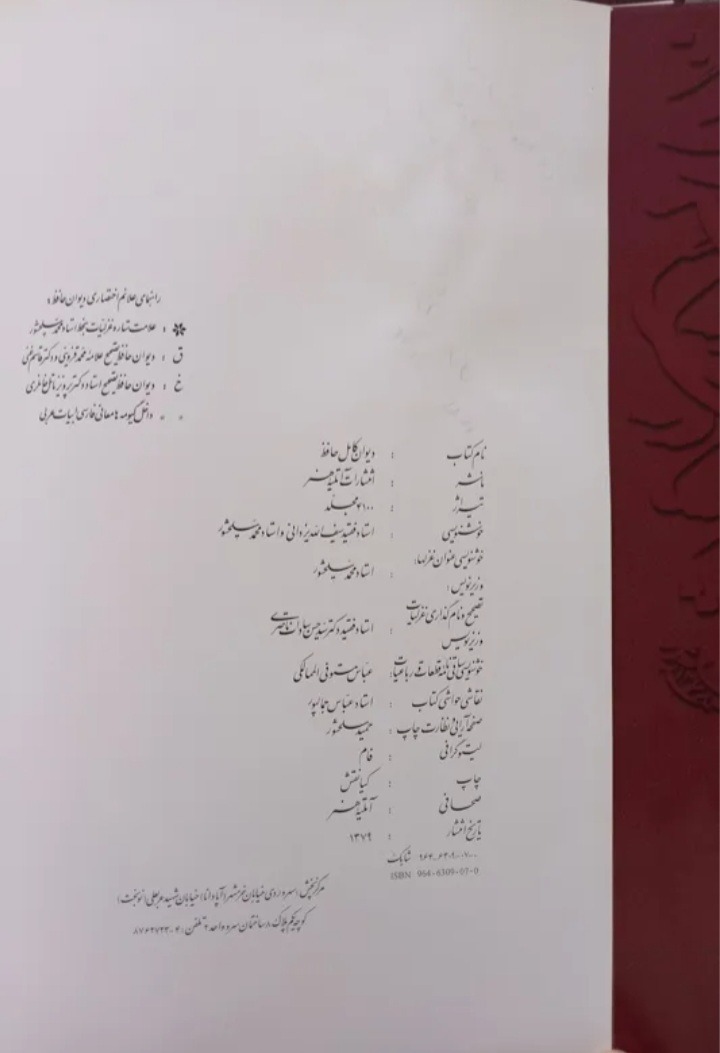 راهنمای علائم اختصاری دیوان حافظ :
✽ : علامت ستاره غزلیات بخط استاد محمد سلحشور
ق : دیوان حافظ تصحیح علامه محمد قزوینی و دکتر قاسم غنی
خ : دیوان حافظ تصحیح استاد دکتر پرویز ناتل خانلری
« » داخل گیومه ها معانی فارسی ابیات عربی
نام کتاب : دیوان کامل حافظ
ناشر : انتشارات آتلیه هنر
تیراژ : ۲۱۰۰ مجلد
خوشنویسی : استاد فقید سیف الله یزدانی و استاد محمد سلحشور
خوشنویسی عنوان غزلها،
وزیرنویس : استاد محمد سلحشور
تصحیح و نام گذاری غزلیات
وزیرنویس : استاد فقید دکتر سید حسن سادات ناصری
خوشنویسی ساقی نامه قطعات و رباعیات : عباس مستوفی الممالکی
نقاشی حواشی کتاب : استاد عباس جمالپور
صفحه آرایی و نظارت چاپ : حمید سلحشور
لیتوگرافی : فام
چاپ : کیانقش
صحافی : آتلیه هنر
تاریخ انتشار : ۱۳۷۹
شابک ۹۶۴-۶۳۰۹-۰۷-۰
ISBN 964-6309-07-0
مرکز پخش : سهروردی خیابان خرمشهر (آپادانا) خیابان شهید عربعلی (نوبخت)
کوچه یکم پلاک ۸ ساختمان سرو واحد ۲ تلفن : ۴-۸۷۶۲۷۲۳